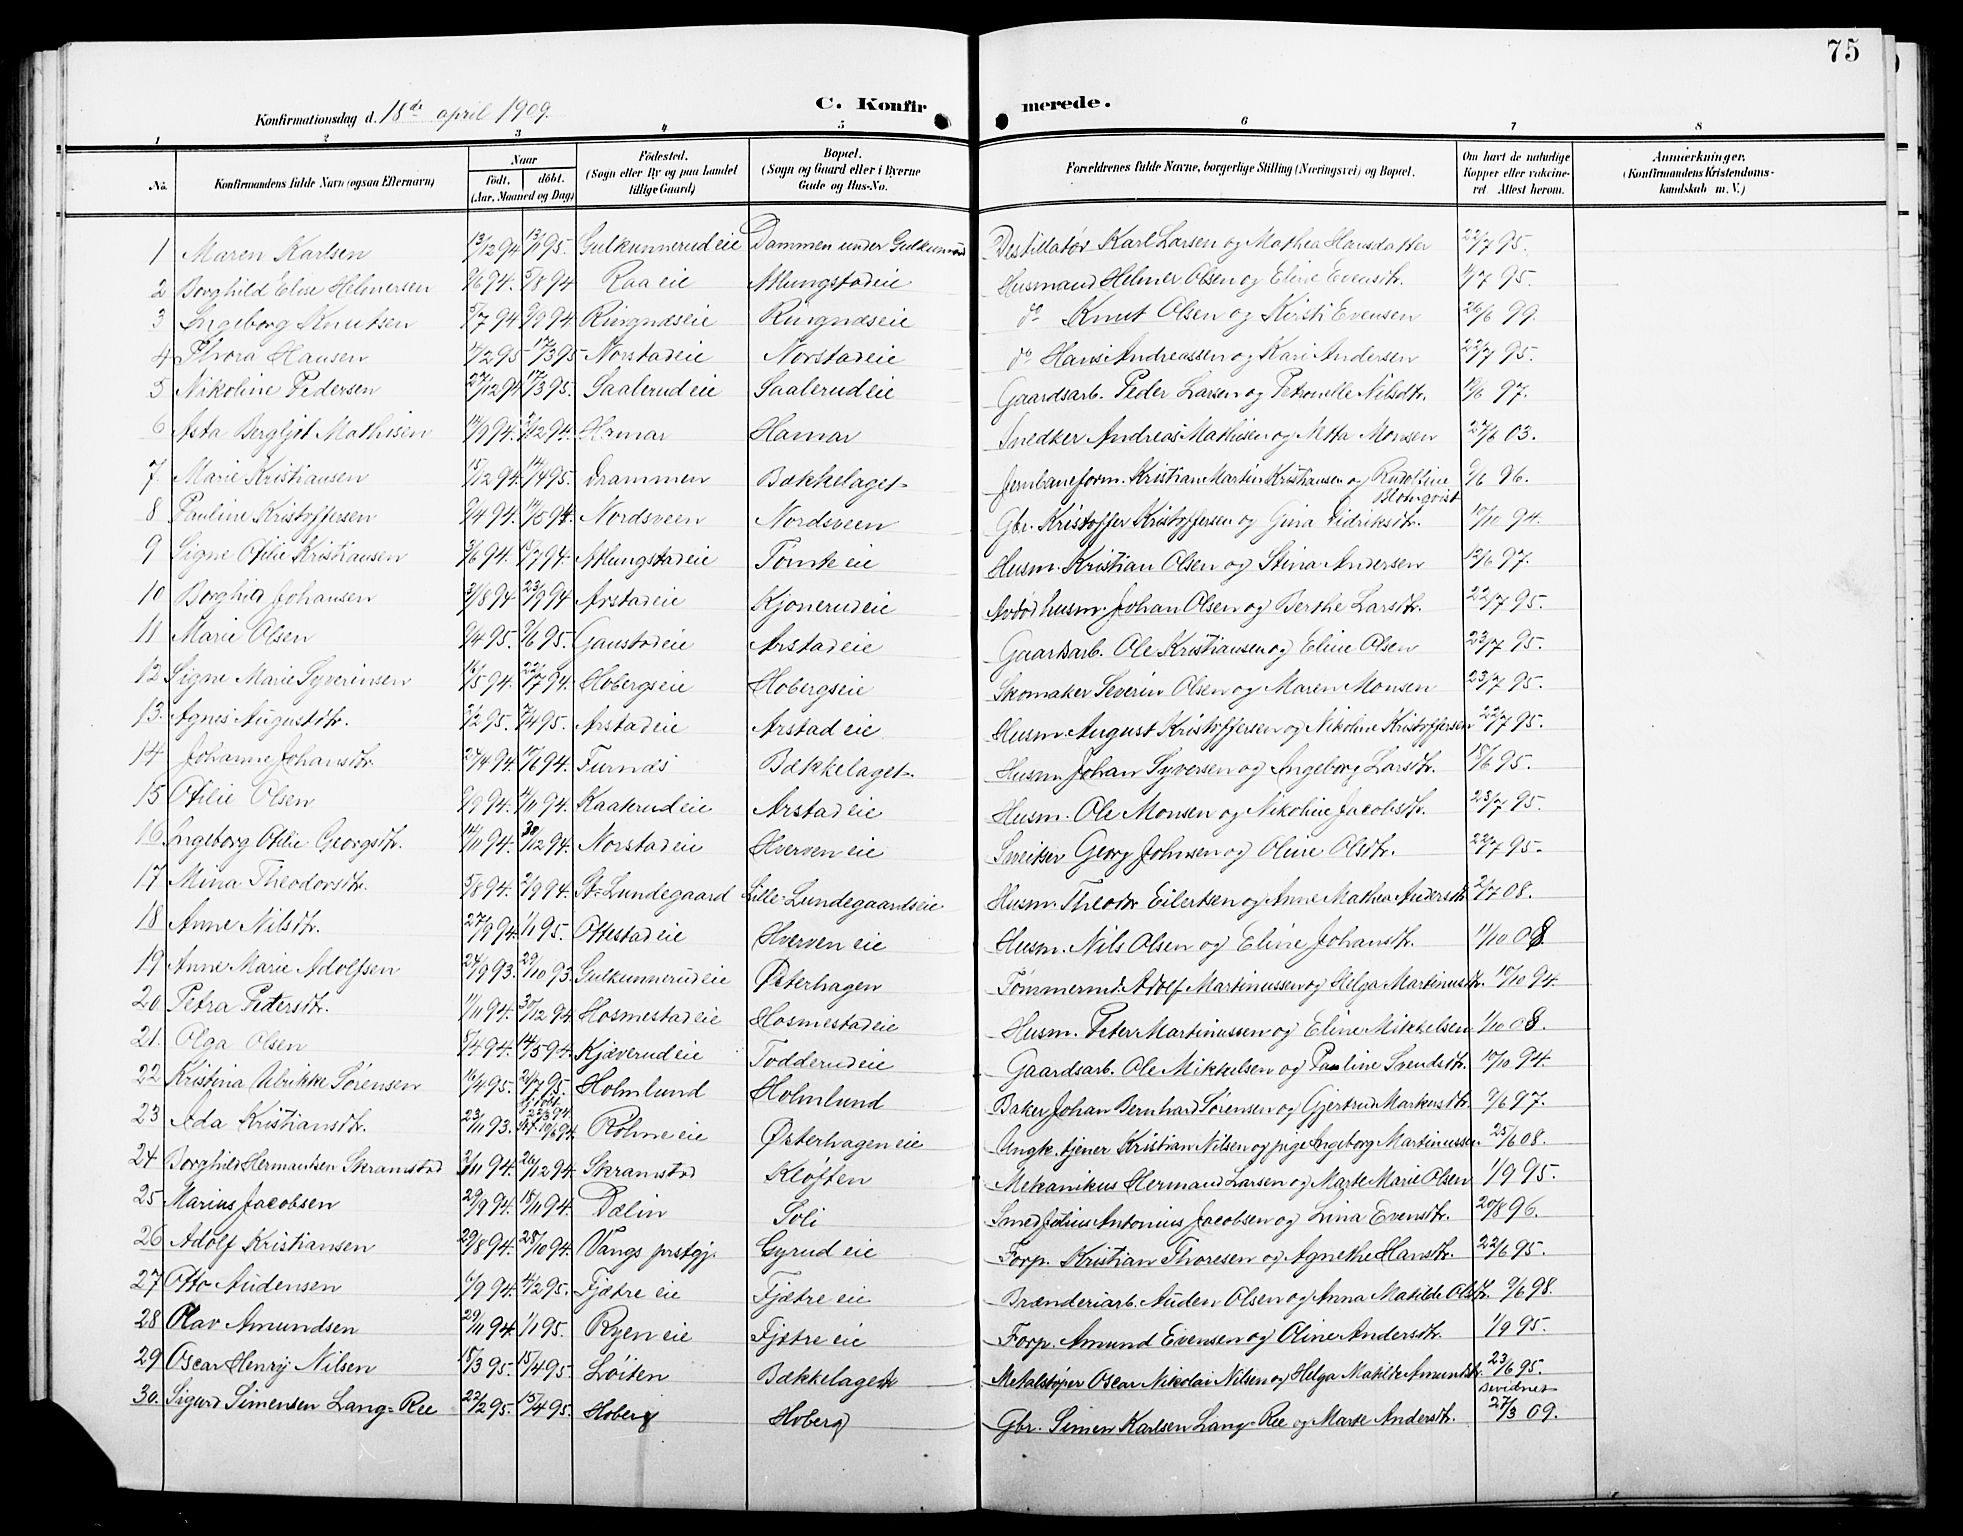 75
Konfirmationsdag d. 18de april 1909.
C. Konfirmerede.
1 2 3 4 5 6 7 8
No. Konfirmandens fulde Navn (ogsaa Efternavn) Naar født, døbt. (Aar, Maaned og Dag) Fødested. (Sogn eller By og paa Landet tillige Gaard) Bopæl. (Sogn og Gaard eller i Byerne Gade og Hus-No. Forældrenes fulde Navne, borgerlige Stilling (Næringsvei) og Bopæl. Om havt de naturlige Kopper eller vaccineret Attest herom. Anmærkninger. (Konfirmandens Kristendomskundskab m. V.)
1 Maren Karlsen 13/12 94 13/1 95. Gulkunnerud eie Dammen under Gulkunnerud Destillatør Karl Larsen og Mathea Hansdatter 22/7 95.
2 Borghild Elise Helmersen 9/6 94. 5/8 94 Raa eie Atlungstad eie Husmand Helmer Olsen og Eline Evensdtr. 11/7 95.
3 Ingeborg Knutsen 5/7 94 9/9 94. Ringnæs eie Ringnæs eie do Knut Olsen og Kirsti Evensen 26/6 99.
4 Thora Hansen 11/2 95 17/3 95 Norstad eie Norstad eie do Hans Andreassen og Kari Andersen 22/7 95.
5 Nikoline Pedersen 27/12 94 17/3 95. Saalerud eie Saalerud eie Gaardsarb. Peder Larsen og Petronelle Nilsdtr. 19/6 97.
6 Asta Bergljot Mathisen 14/9 94. 2/12 94. Hamar Hamar Snedker Andreas Mathisen og Mtta Monsen 27/6 03.
7. Marie Kristiansen 15/12 94 14/4 95. Drammen Bækkelaget Jernbaneform. Kristian Martin Kristiansen og Rudolfine Blomqvist 9/6 96.
8 Pauline Kristoffersen 9/4 94. 14/5 94. Nordsveen Nordsveen Gbr. Kristoffer Kristoffersen og Gina Didriksdtr. 10/10 94.
9 Signe Otilie Kristiansen 3/6 94. 15/7 94. Atlungstad eie Tomte eie Husm. Kristian Olsen og Stina Andersen 12/6 97.
10 Borghild Johansen 31/8 94 23/9 94 Arstad eie Kjonerud eie Avdød husm. Johan Olsen og Berthe Larsdtr. 22/7 95.
11 Marie Olsen 9/4 95. 9/6 95. Gaustad eie Arstad eie Gaardsarb. Ole Kristiansen og Eline Olsen 23/7 95.
12 Signe Marie Syverinsen 16/5 94. 22/7 94. Hobergs eie Hobergs eie Skomaker Severin Olsen og Maren Monsen 23/7 95.
13. Agnes Augustdtr. 3/2 95. 7/4 95. Arstad eie Arstad eie Husm. August Kristoffersen og Nikoline Kristoffersen 22/7 95.
14 Johanne Johansdtr. 27/4 94. 17/6 94. Furnæs Bækkelaget Husm. Johan Syversen og Ingeborg Larsdtr. 18/6 95.
15 Otilie Olsen 9/9 94. 11/11 94. Kaaterud eie Arstad eie Husm. Ole Monsen og Nikoline Jacobsdtr. 23/7 95.
16 Ingeborg Otilie Georgsdtr. 14/11 94. 30/12 94. Norstad eie Hverven eie Sveitser Georg Johnsen og Oline Olsdtr. 22/7 95.
17 Mina Theodorsdtr. 5/8 94. 2/9 94. St. Lundegaard Lille-Lundegaardseie Husm. Theodor Eilertsen og Anne Mathea Andersdtr 2/7 08.
18 Anne Nilsdtr. 27/9 94. 1/1 95. Ottestad eie Hverven eie Husm. Nils Olsen og Eline Johansdtr. 11/10 08.
19 Anne Marie Adolfsen 24/9 93. 29/10 93. Gulkunnerud eie Østerhagen Tømmermd. Adolf Martinussen og Helga Martinusdtr. 10/10 94.
20 Petra Petersdtr. 11/11 94. 30/12 94. Hosmestad eie Hosmestad eie Husm. Peter Martinussen og Eline Mikkelsen 1/10 08.
21. Olga Olsen 5/4 94. 14/5 94. Kjæverud eie Todderud eie Gaardsarb. Ole Mikkelsen og Pauline Svendsdtr. 10/10 94.
22 Kristina Ulrikke Sørensen 16/4 95. 21/7 95. Holmlund Holmlund Baker Johan Bernhard Sørensen og Gjertrud Markusdtr. 9/6 97.
23 Ada Kristiansdtr. 23/11 93. Rohne eie Østerhagen eie Ungk. tjener Kristian Nilsen og pige Ingeborg Martinussen 25/6 08.
24 Borghild Hermansen Skramstad 2/11 94. 26/12 94. Skramstad Kloften Mekanikus Herman Larsen og Marte Marie Olsen 1/9 95.
25 Marius Jacobsen 29/9 94. 15/11 94. Dælin Soli Smed Julius Antonius Jacobsen og Lina Evensdtr. 20/8 96.
26 Adolf Kristiansen 29/8 94. 28/10 94. Vangs prstgj. Gyrud eie Forp. Kristian Thoresen og Agnethe Hansdtr. 22/6 95.
27 Otto Audensen 6/9 94. 4/2 95. Fjætre eie Fjætre eie Brænderiarb. Auden Olsen og Anna Matilde Olsdtr. 9/6 98.
28 Olav Amundsen 29/11 94. 1/1 95. Ryen eie Fjætre eie Forp. Amund Evensen og Oline Andersdtr. 1/9 95.
29 Oscar Henry Nilsen 15/3 95. 15/4 95. Løiten Bækkelaget Metalstøper Oscar Nikolai Nilsen og Helga Matilde Amundsdtr. 23/6 95.
30. Sigurd Simensen Lang-Ree 22/2 95. 15/4 95. Hoberg Hoberg Gbr. Simen Karlsen Lang-Ree og Marte Andersdtr. Bevidnet 27/3 09.